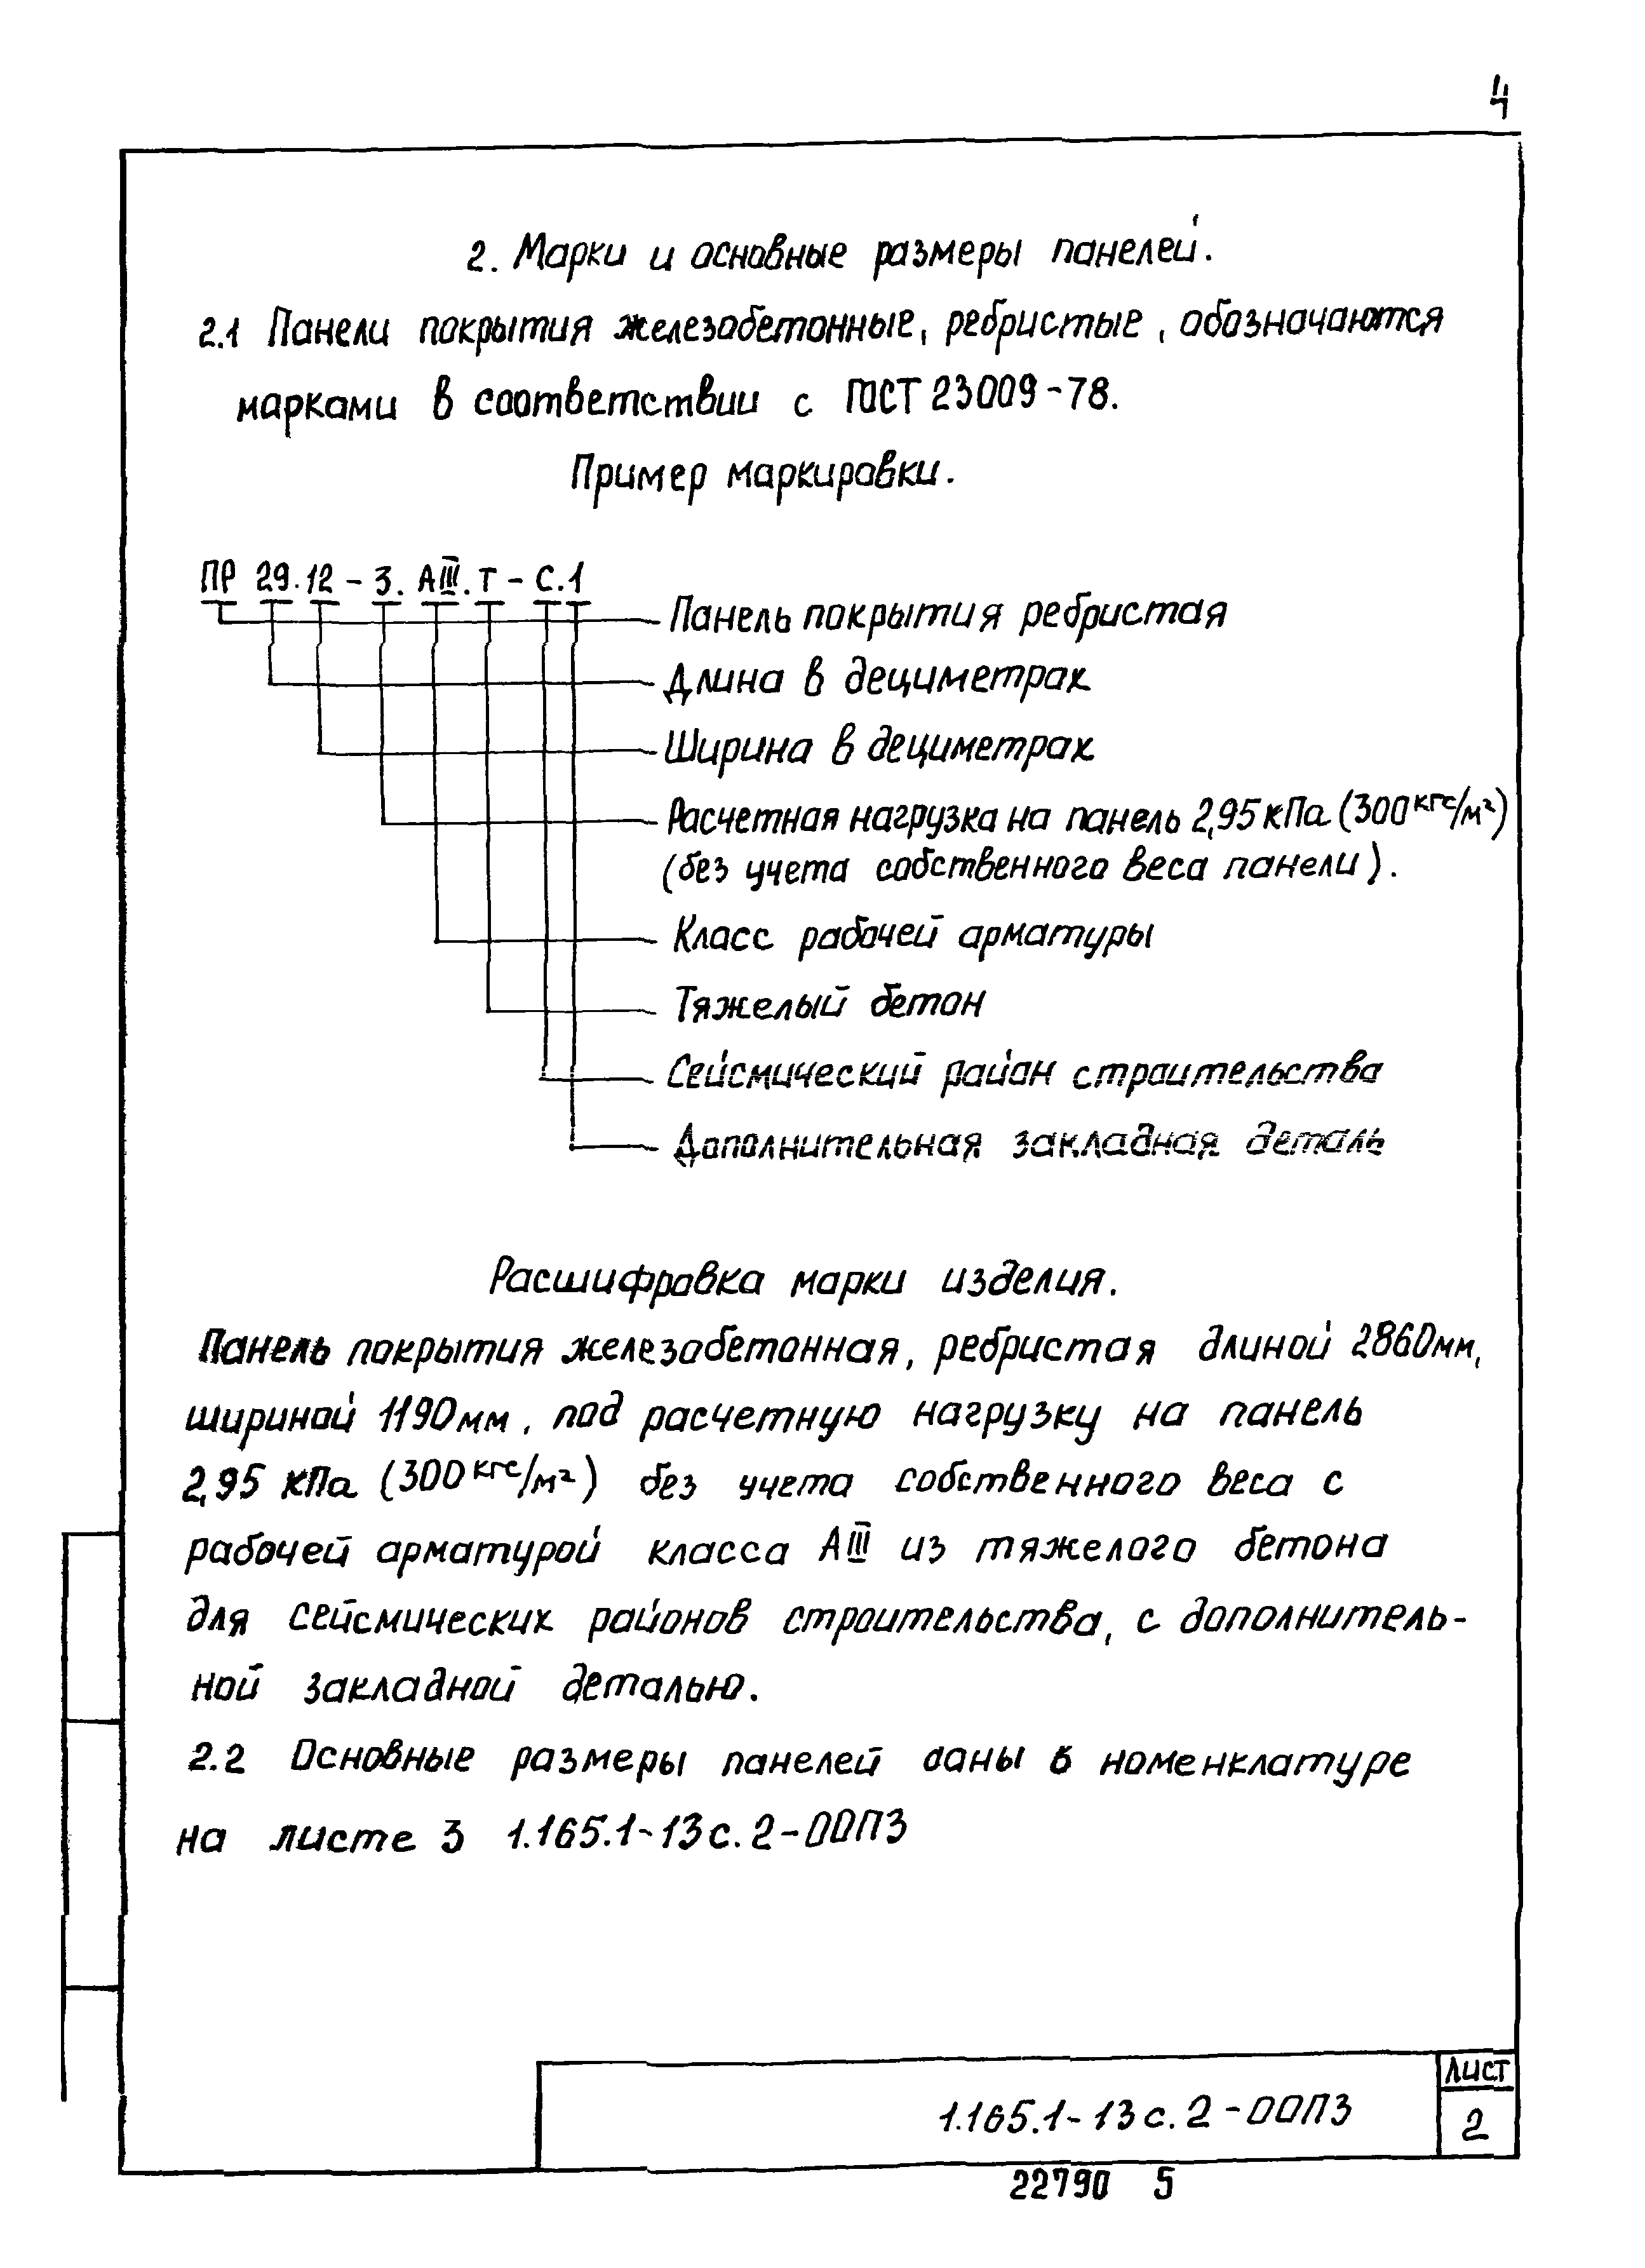 4
2. Марки и основные размеры панелей.
2.1 Панели покрытия железобетонные, ребристые, обозначаются
марками в соответствии с ГОСТ 23009-78.
Пример маркировки.
ПР 29.12-3. АIII. Т-С.1
Панель покрытия ребристая
Длина в дециметрах
Ширина в дециметрах
Расчетная нагрузка на панель 2,95 кПа (300 кгс/м²)
(без учета собственного веса панели).
Класс рабочей арматуры
Тяжелый бетон
Сейсмический район строительства
Дополнительная закладная деталь
Расшифровка марки изделия.
Панель покрытия железобетонная, ребристая длиной 2860мм,
шириной 1190мм, под расчетную нагрузку на панель
2,95 кПа (300 кгс/м²) без учета собственного веса с
рабочей арматурой класса АIII из тяжелого бетона
для сейсмических районов строительства, с дополнитель-
ной закладной деталью.
2.2 Основные размеры панелей даны в номенклатуре
на листе 3 1.165.1-13с.2-00ПЗ
1.165.1-13с.2-00ПЗ
Лист
2
22790 5